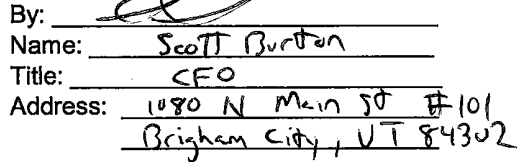 By:
Name: Scott Burton
Title: CFO
Address: 1080 N Main St #101
Brigham City, UT 84302